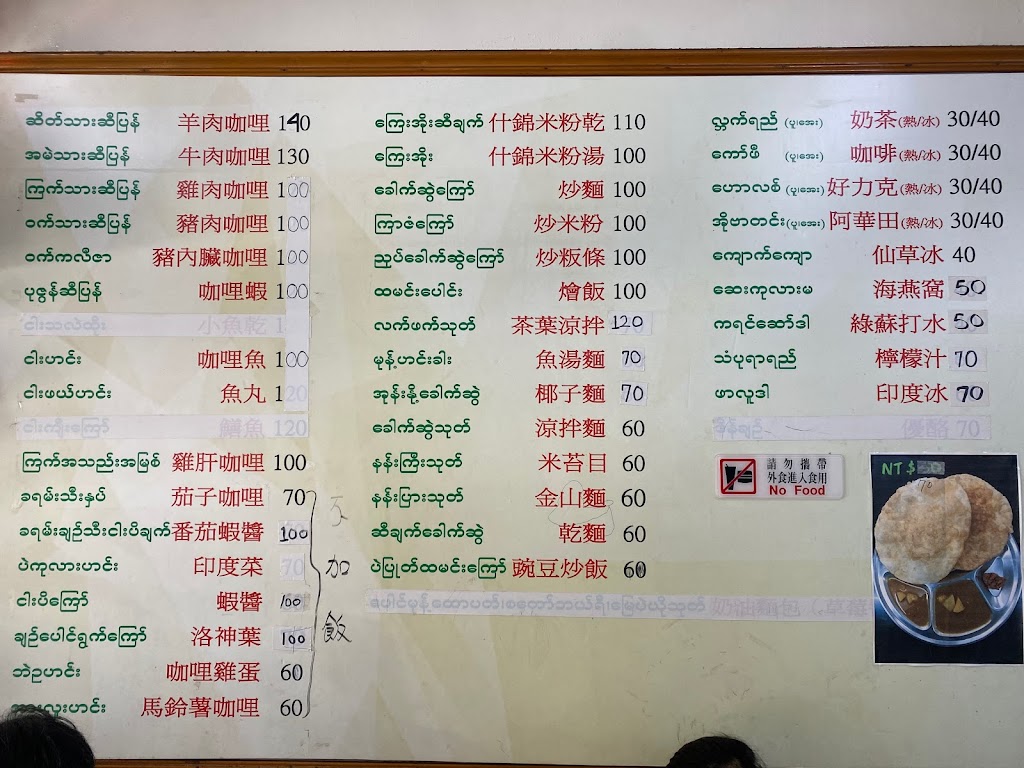 ဆိတ်သားဆီပြန် 羊肉咖哩 140
အမဲသားဆီပြန် 牛肉咖哩 130
ကြက်သားဆီပြန် 雞肉咖哩 100
ဝက်သားဆီပြန် 豬肉咖哩 100
ဝက်ကလီဇာ 豬內臟咖哩 100
ပုဇွန်ဆီပြန် 咖哩蝦 100
ငါးသလဲထိုး 小魚乾
ငါးဟင်း 咖哩魚 100
ငါးဖယ်ဟင်း 魚丸 120
ငါးကျီးကြော် 鱔魚 120
ကြက်အသည်းအမြစ် 雞肝咖哩 100
ခရမ်းသီးနှပ် 茄子咖哩 70
ခရမ်းချဉ်သီးငါးပိချက် 番茄蝦醬 100
ပဲကုလားဟင်း 印度菜 70
ငါးပိကြော် 蝦醬 100
ချဉ်ပေါင်ရွက်ကြော် 洛神葉 100
ဘဲဥဟင်း 咖哩雞蛋 60
အာလူးဟင်း 馬鈴薯咖哩 60
加飯
ကြေးအိုးဆီချက် 什錦米粉乾 110
ကြေးအိုး 什錦米粉湯 100
ခေါက်ဆွဲကြော် 炒麵 100
ကြာဇံကြော် 炒米粉 100
ညှပ်ခေါက်ဆွဲကြော် 炒粄條 100
ထမင်းပေါင်း 燴飯 100
လက်ဖက်သုတ် 茶葉涼拌 120
မုန့်ဟင်းခါး 魚湯麵 70
အုန်းနို့ခေါက်ဆွဲ 椰子麵 70
ခေါက်ဆွဲသုတ် 涼拌麵 60
နန်းကြီးသုတ် 米苔目 60
နန်းပြားသုတ် 金山麵 60
ဆီချက်ခေါက်ဆွဲ 乾麵 60
ပဲပြုတ်ထမင်းကြော် 豌豆炒飯 60
奶油麵包 (草莓
လ္ဘက်ရည် (ပူ၊အေး) 奶茶(熱/冰) 30/40
ကော်ဖီ (ပူ၊အေး) 咖啡(熱/冰) 30/40
ဟောလစ် (ပူ၊အေး) 好力克(熱/冰) 30/40
အိုဗာတင်း (ပူ၊အေး) 阿華田(熱/冰) 30/40
ကျောက်ကျော 仙草冰 40
ဆေးကုလားမ 海燕窩 50
ကရင်ဆော်ဒါ 綠蘇打水 50
သံပုရာရည် 檸檬汁 70
ဖာလူဒါ 印度冰 70
ဒိန်ချဉ် 優酪 70
請勿攜帶
外食進入食用
No Food
NT$
70